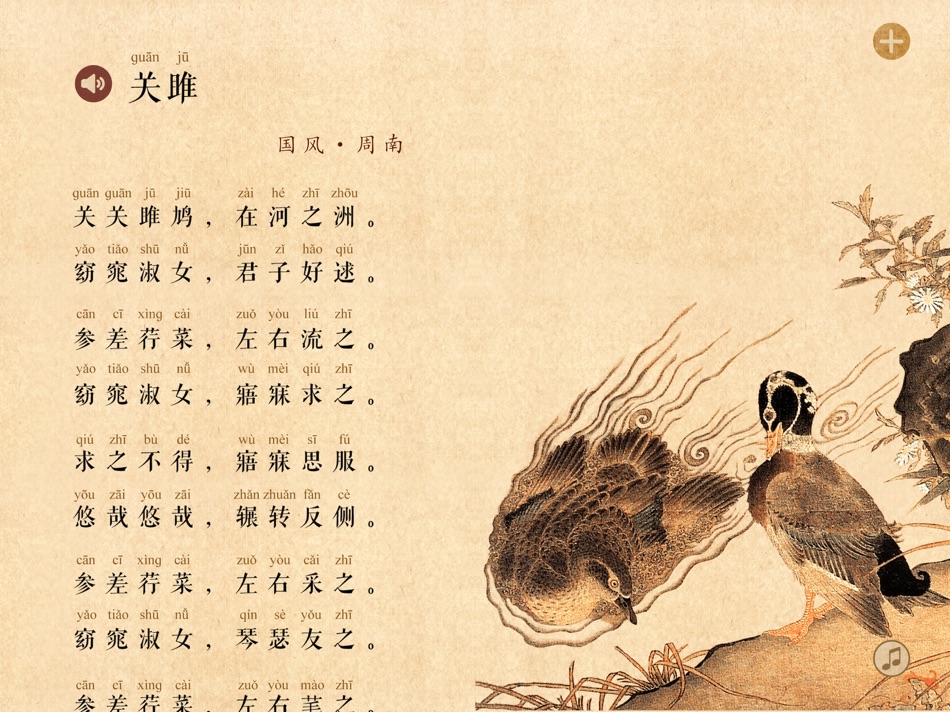 guān jū
关雎
国风·周南
guān guān jū jiū zài hé zhī zhōu
关关雎鸠，在河之洲。
yǎo tiǎo shū nǚ jūn zǐ hǎo qiú
窈窕淑女，君子好逑。
cēn cī xìng cài zuǒ yòu liú zhī
参差荇菜，左右流之。
yǎo tiǎo shū nǚ wù mèi qiú zhī
窈窕淑女，寤寐求之。
qiú zhī bù dé wù mèi sī fú
求之不得，寤寐思服。
yōu zāi yōu zāi zhǎn zhuǎn fǎn cè
悠哉悠哉，辗转反侧。
cēn cī xìng cài zuǒ yòu cǎi zhī
参差荇菜，左右采之。
yǎo tiǎo shū nǚ qín sè yǒu zhī
窈窕淑女，琴瑟友之。
cēn cī xìng cài zuǒ yòu mào zhī
参差荇菜，左右芼之。